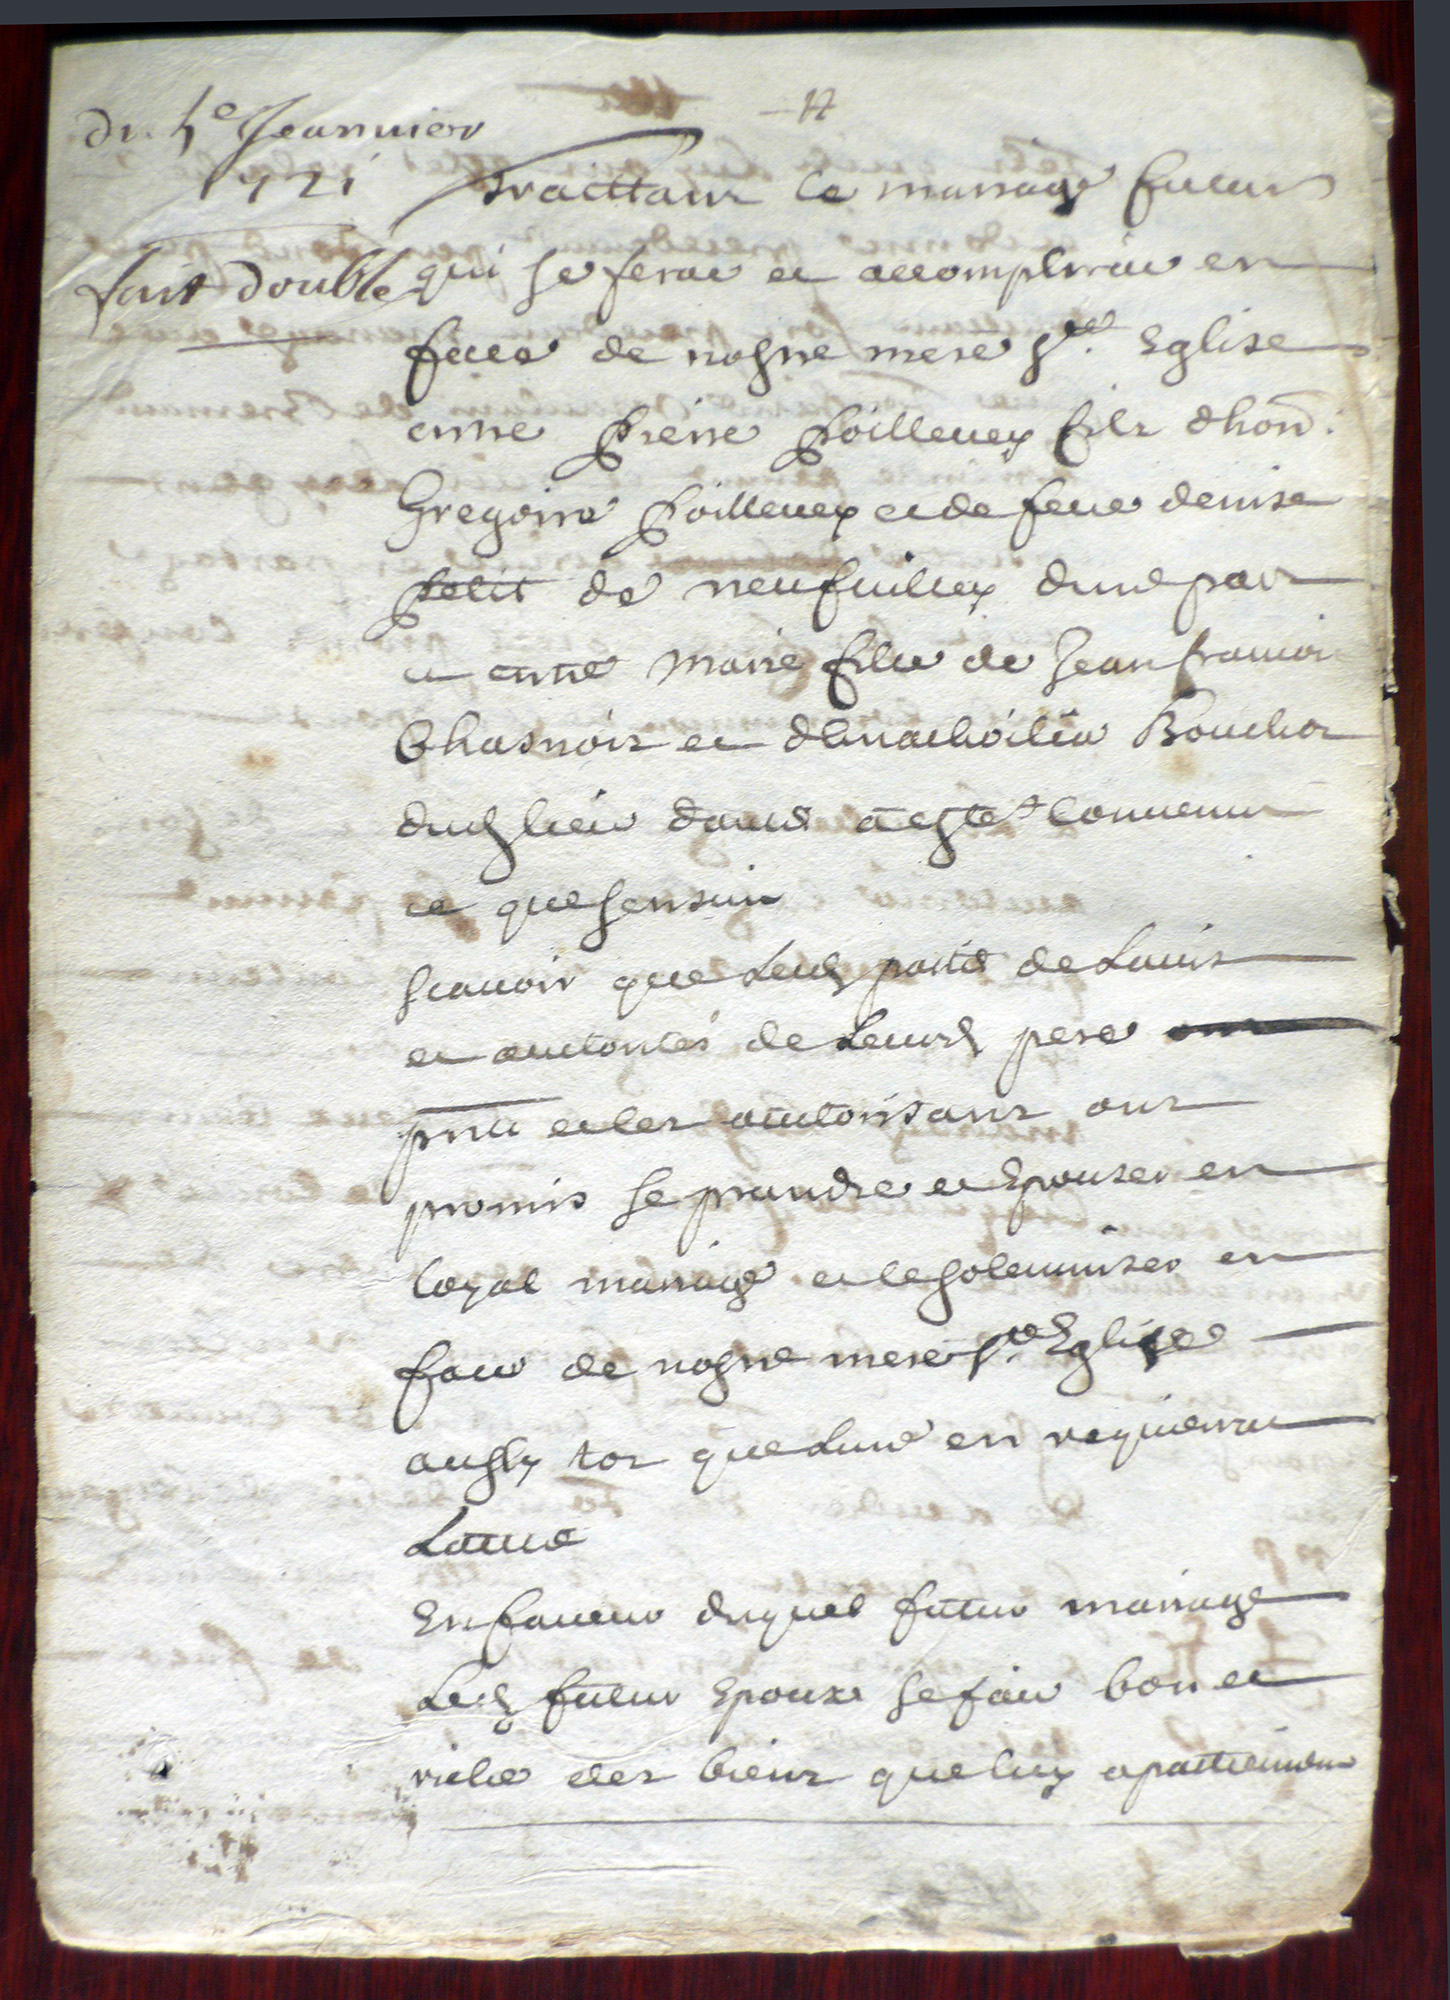 du 5e Jeanvier
1721
fait double
17
Traittant le mariage futur
qui se ferat et accomplirat en
face de nostre mere Ste Eglise
entre Pierre Poilleuey fils dhon:
Gregoire Poilleuey et de feue denise
petit de neufuilley dune part
et entre Marie fille de Jean francois
Chasnoit et Boucho
dud lieu dautre a esté convenu
ce que sensuit
scauoir que lesd partie de lauis
et autorités de leursd pere
pnt et les autorisant ont
promis se prandre et Epouser en
loyal mariage et le solemniser en
face de nostre mere Ste Eglise
aussy tot que lune en requierrat
lautre
En faueur duquel futur mariage
led futur Epoux se fait bon et
riche des biens que luy apartiennent